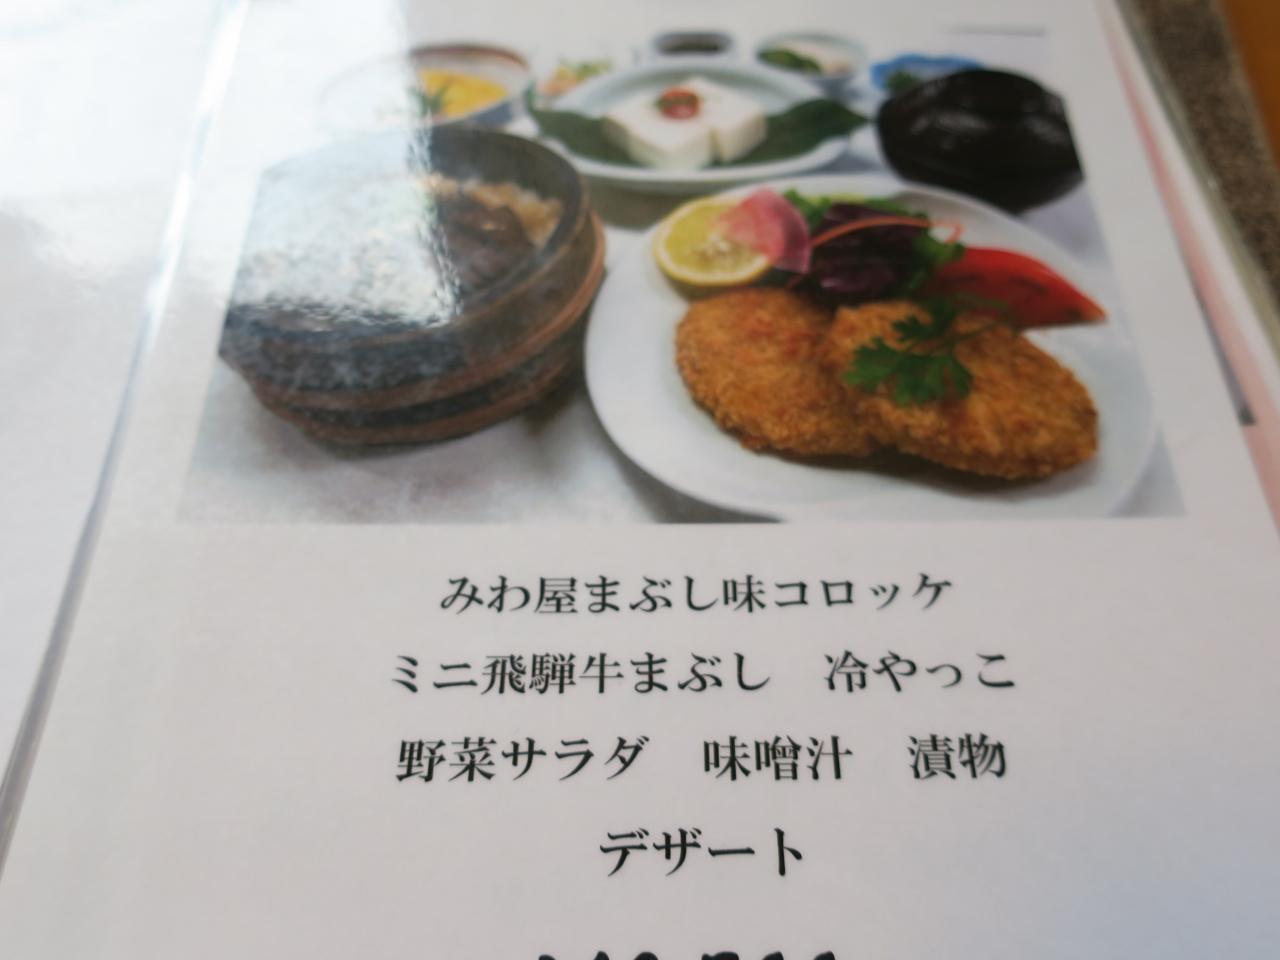 みわ屋まぶし味コロッケ
ミニ飛騨牛まぶし　冷やっこ
野菜サラダ　味噌汁　漬物
デザート